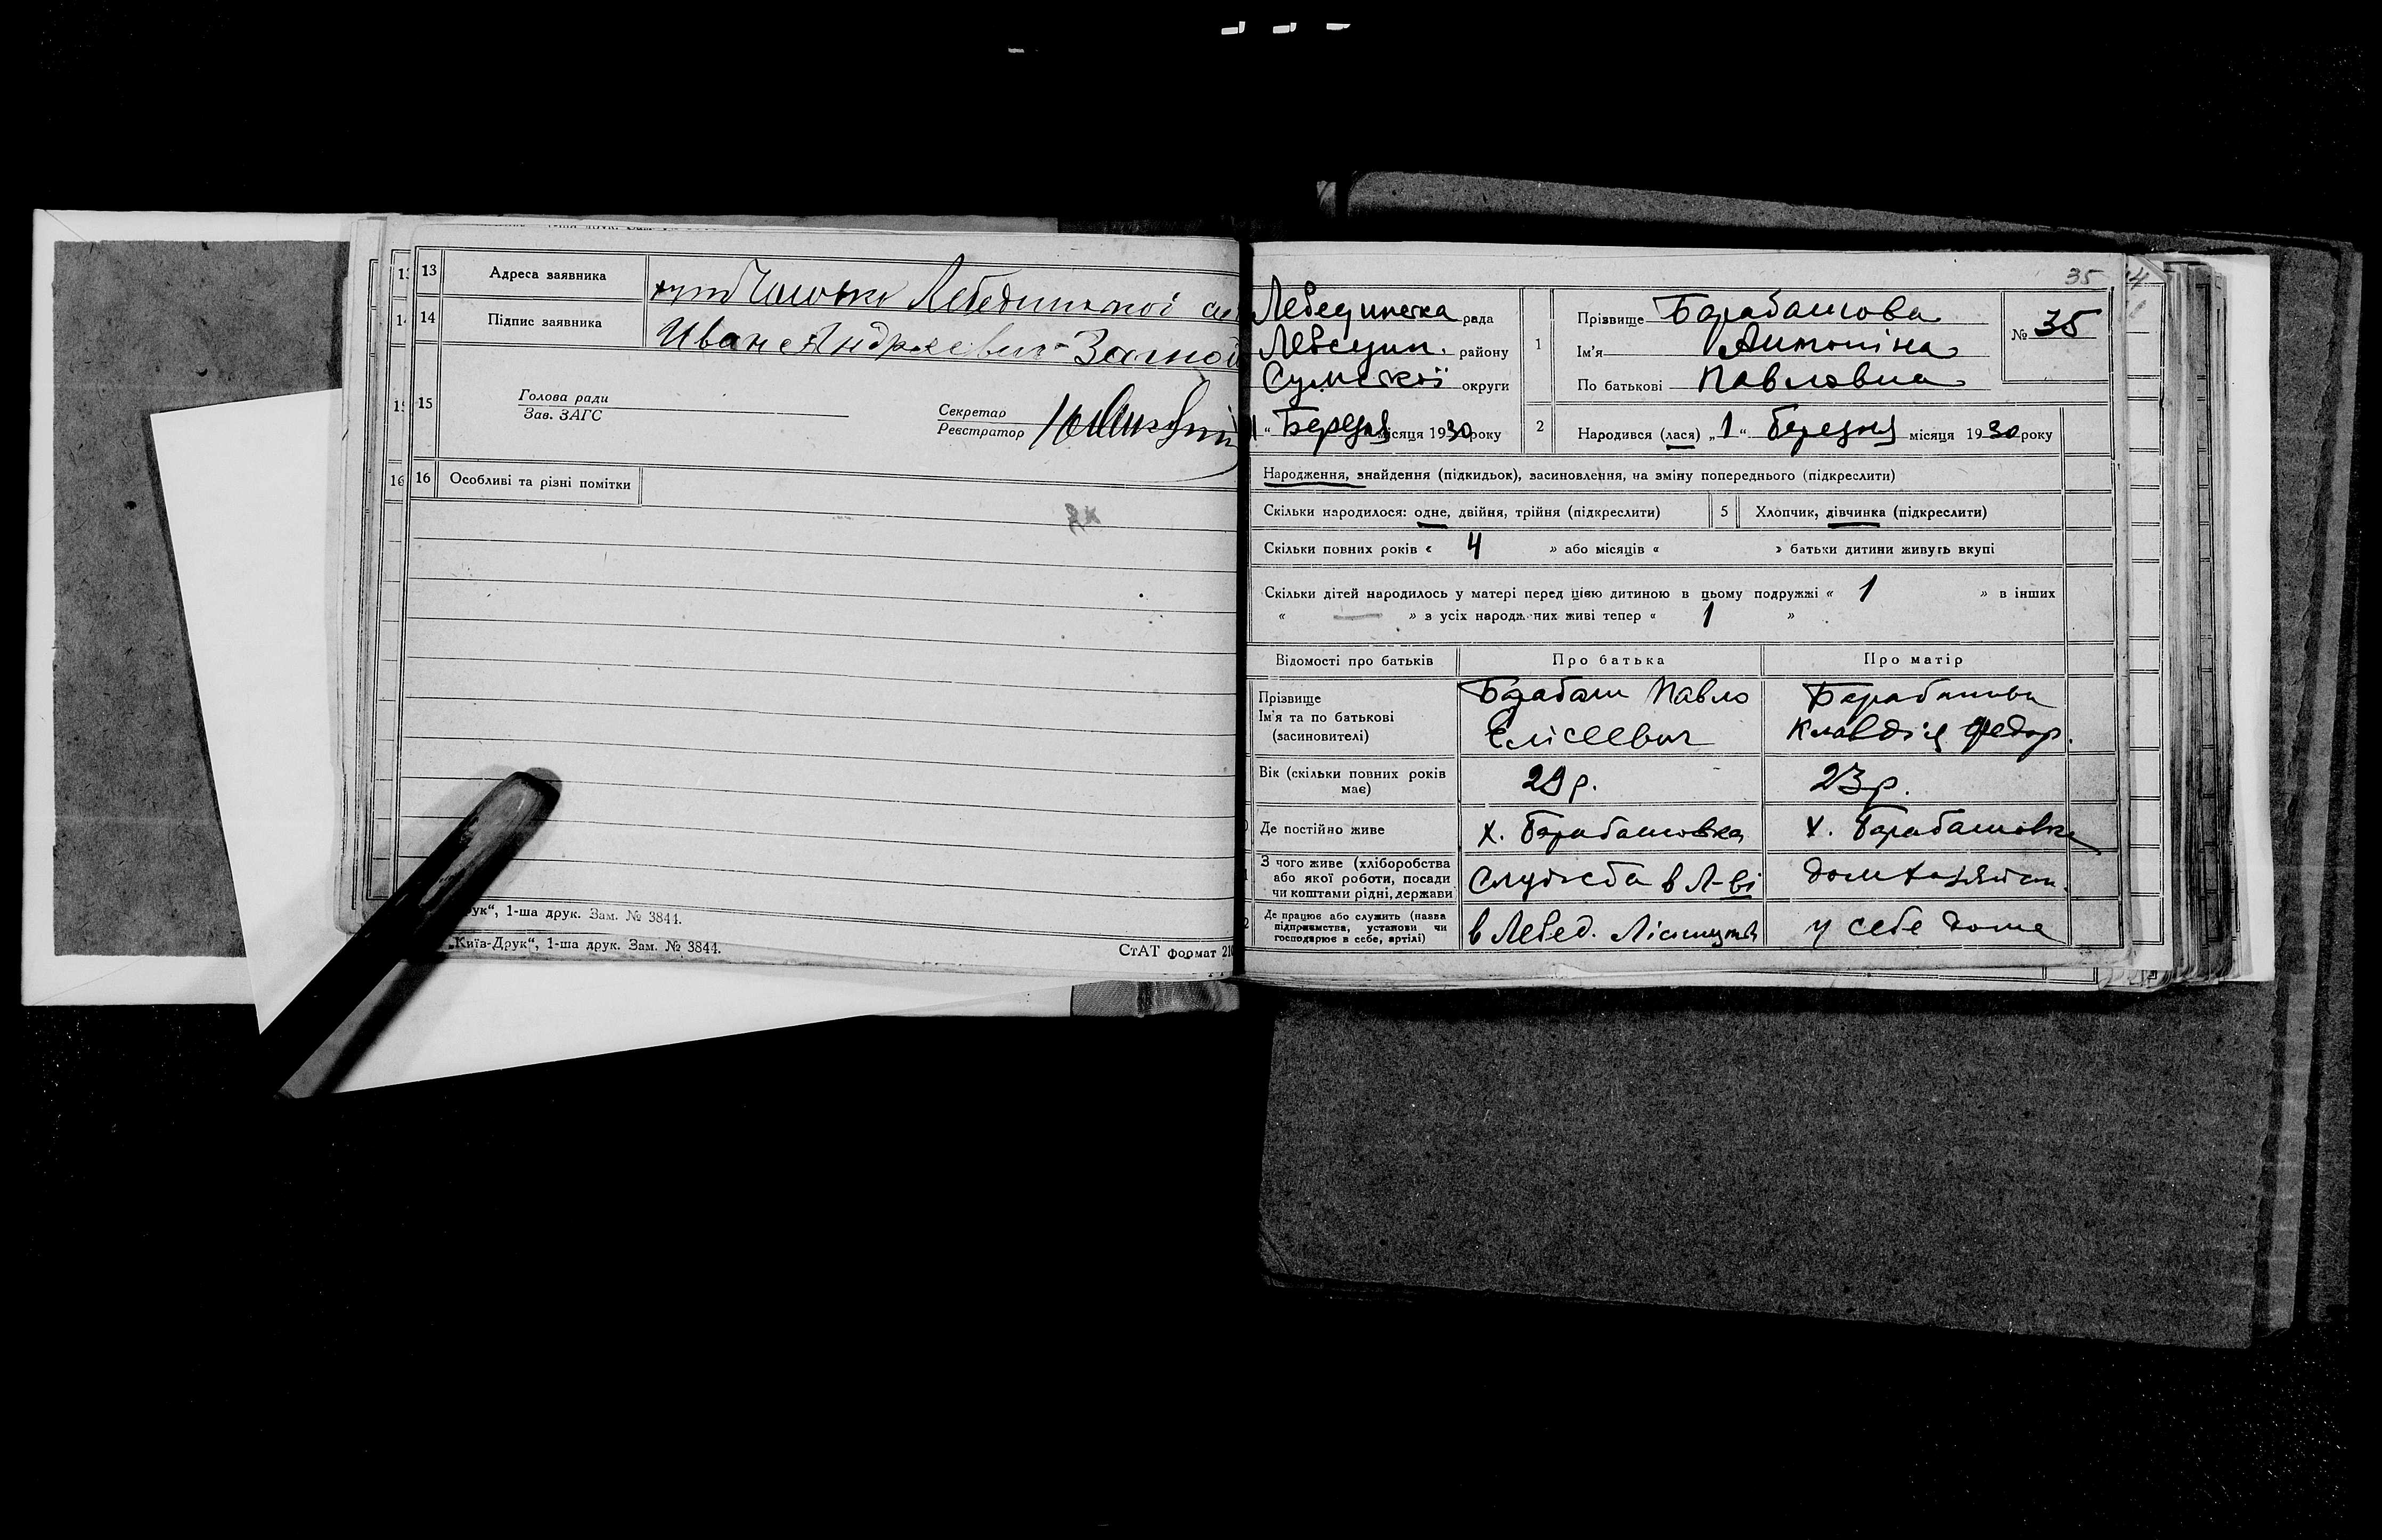 13 Адреса заявника
14 Підпис заявника Иван Андреевич
15 Голова ради
Зав. ЗАГС
Секретар
Реєстратор
16 Особливі та різні помітки
ук“, 1-ша друк. Зам. № 3844.
„Київ-Друк“, 1-ша друк. Зам. № 3844.
СтАТ формат 210
35
рада
району
Сумської округи
Березня місяця 1930 року
1 Прізвище Барабашова
Ім'я Антоніна
По батькові Павловна
№ 35
2 Народився (лася) „1“ березня місяця 1930 року
Народження, знайдення (підкидьок), засиновлення, на зміну попереднього (підкреслити)
Скільки народилося: одне, двійня, трійня (підкреслити)
5 Хлопчик, дівчинка (підкреслити)
Скільки повних років « 4 » або місяців « » батьки дитини живуть вкупі
Скільки дітей народилось у матері перед цією дитиною в цьому подружжі « 1 » в інших
« — » з усіх народжених живі тепер « 1 »
Відомості про батьків
Про батька
Про матір
Прізвище
Ім'я та по батькові
(засиновителі)
Барабаш Павло
Єлісеевич
Барабашова
Клавдія Федор.
Вік (скільки повних років
має)
29 р.
23 р.
Де постійно живе
х. Барабашовка
х. Барабашовка
З чого живе (хліборобства
або якої роботи, посади
чи коштами рідні, держави
Служба в Л-ві
Де працює або служить (назва
підприємства, установи чи
господарює в себе, артілі)
в Лебед.
у себе дома